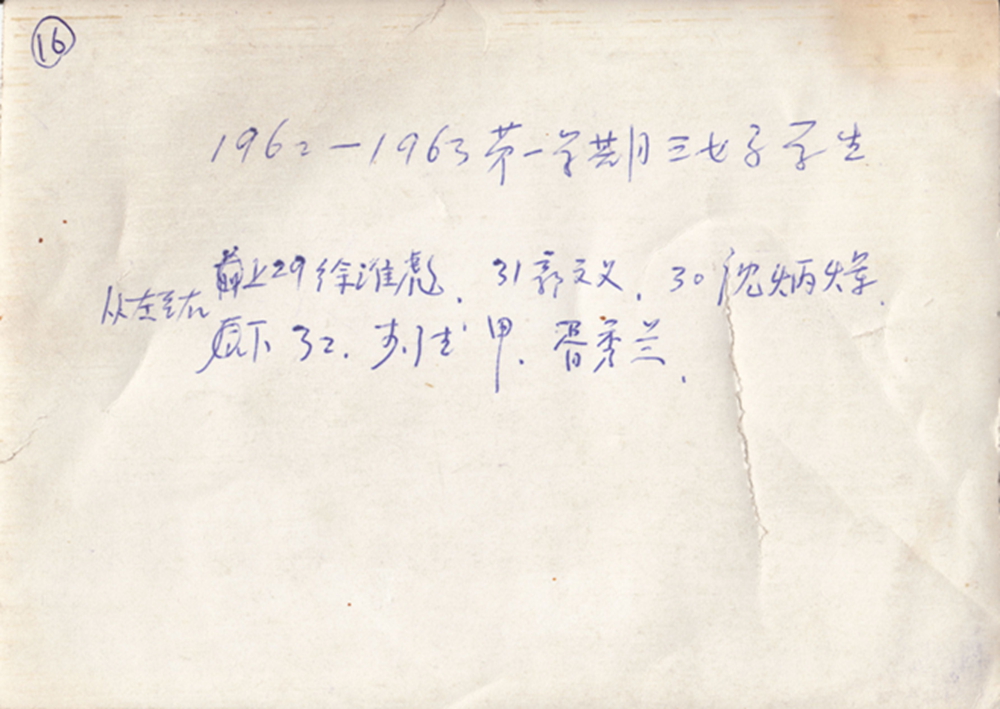 16
1962-1963第一学期三七子学生
从左至右 前上29徐淮彪、31郭文义、30沈炳焠、
下32、甲、胥秀兰、